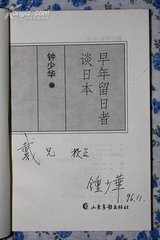 早年留日者
谈日本
钟少华 编
戴 兄 教正
钟少華
96.11.
山东画报出版社